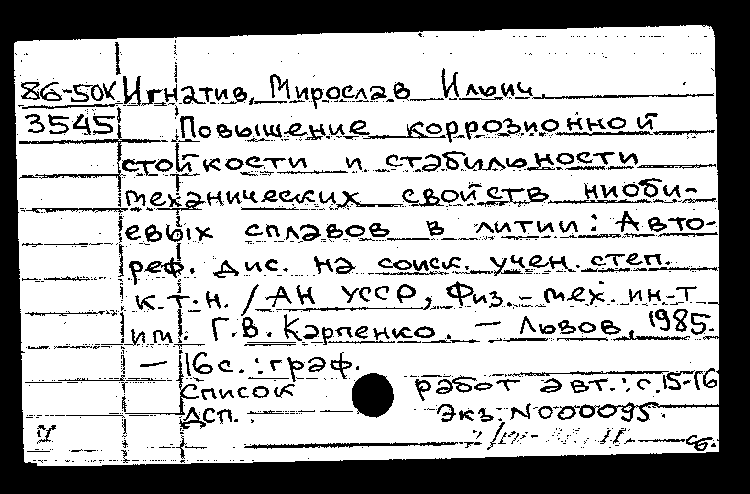 86-50к Игнатив, Мирослав Ильич.
3545 Повышение коррозионной
стойкости и стабильности
механических свойств ниоби-
евых сплавов в литии: Авто-
реф. дис. на соиск. учен. степ.
к.т.н. / АН УССР, Физ.-мех. ин-т
им. Г.В. Карпенко. — Львов, 1985.
— 16 с. : граф.
Список работ авт.: с. 15-16
ДСП. Экз. N000095.
сб.